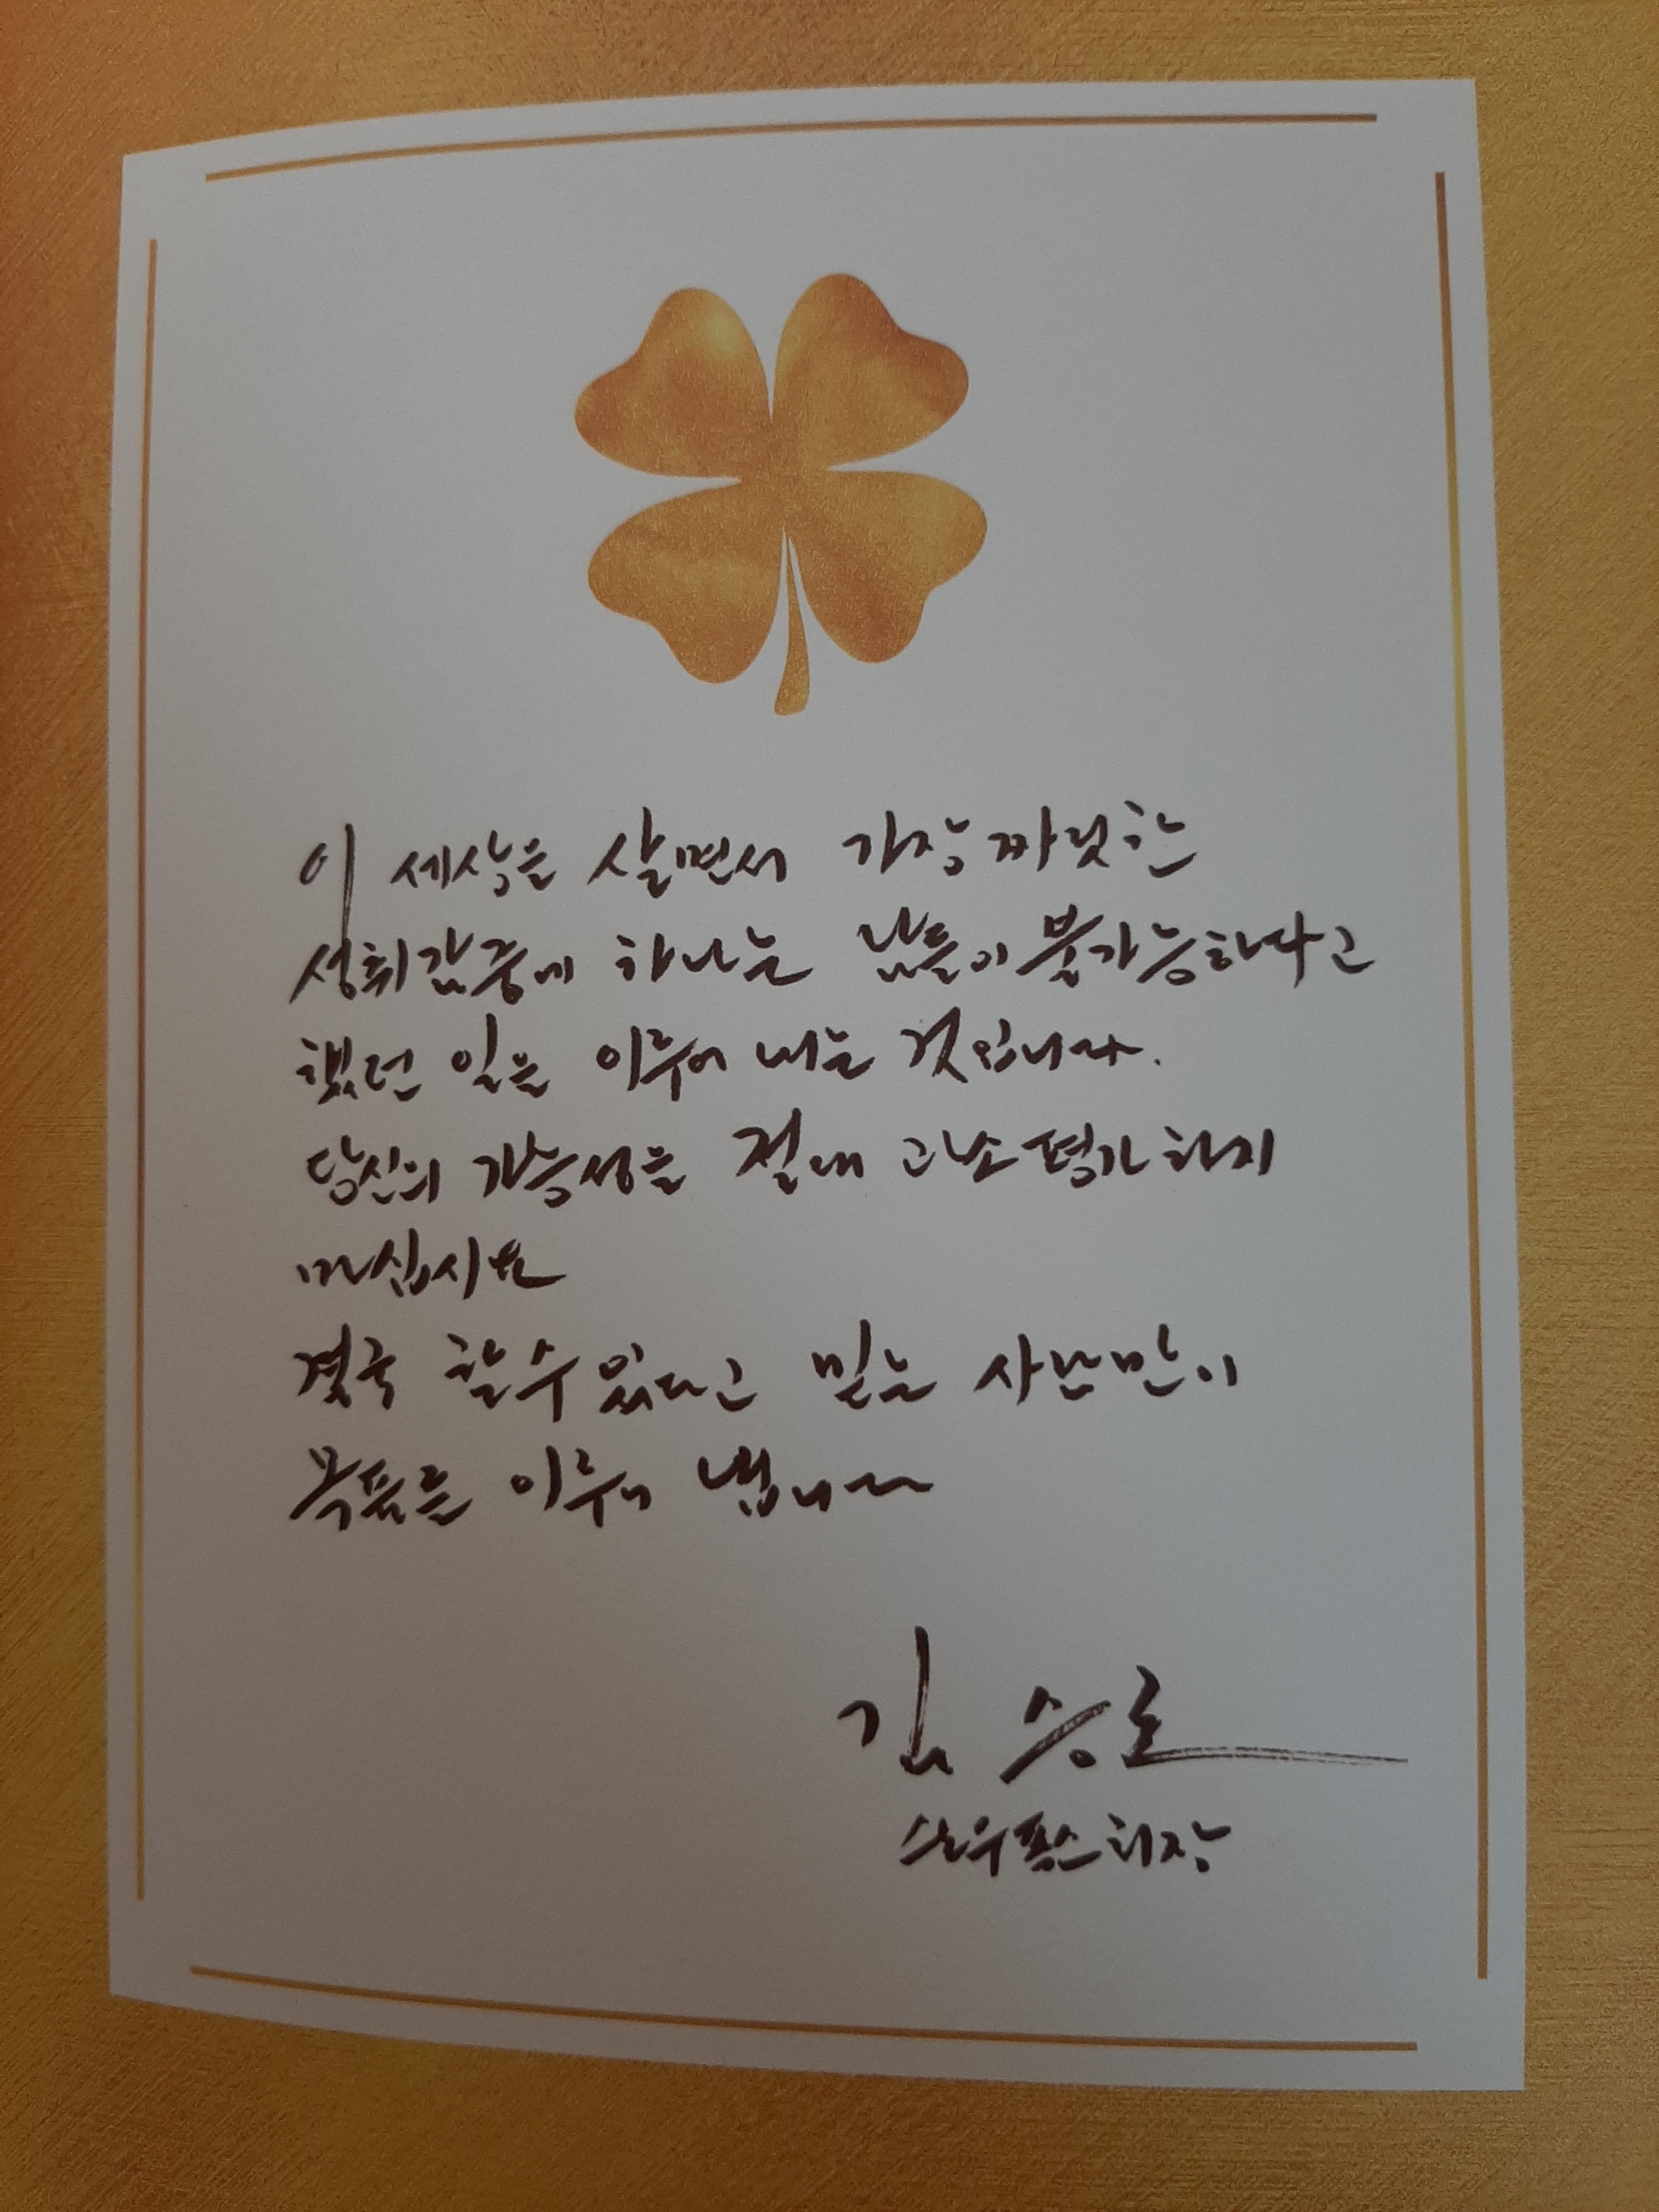 이 세상을 살면서 가장 짜릿한
성취감중에 하나는 남들이 불가능하다고
했던 일을 이루어 내는 것입니다.
당신의 가능성을 절대 과소평가하지
마십시요
결국 할수 있다고 믿는 사람만이
목표를 이루어 냅니다
김승호
스노우폭스 회장